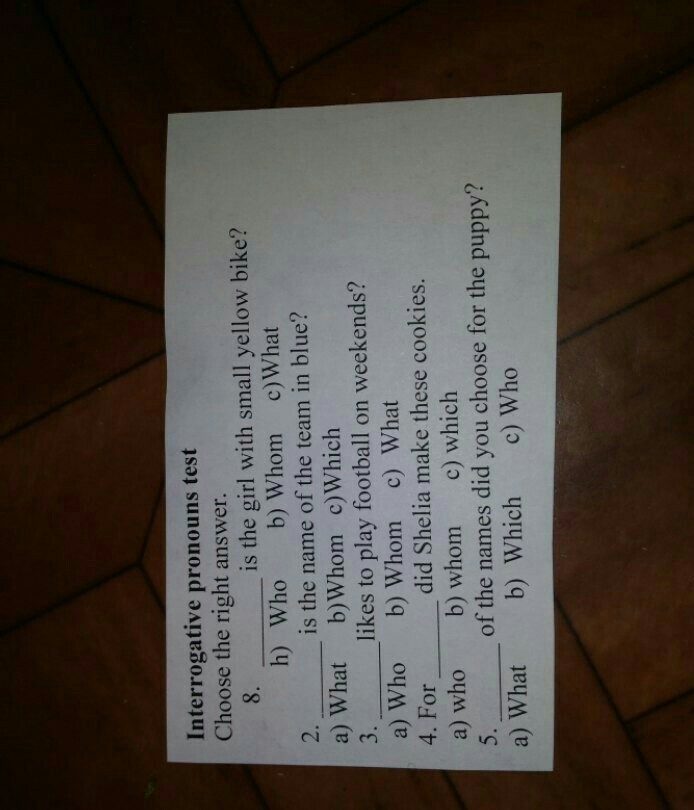 Interrogative pronouns test
Choose the right answer.
8. ______ is the girl with small yellow bike?
h) Who b) Whom c)What
2. ______ is the name of the team in blue?
a) What b)Whom c)Which
3. ______ likes to play football on weekends?
a) Who b) Whom c) What
4. For ______ did Shelia make these cookies.
a) who b) whom c) which
5. ______ of the names did you choose for the puppy?
a) What b) Which c) Who